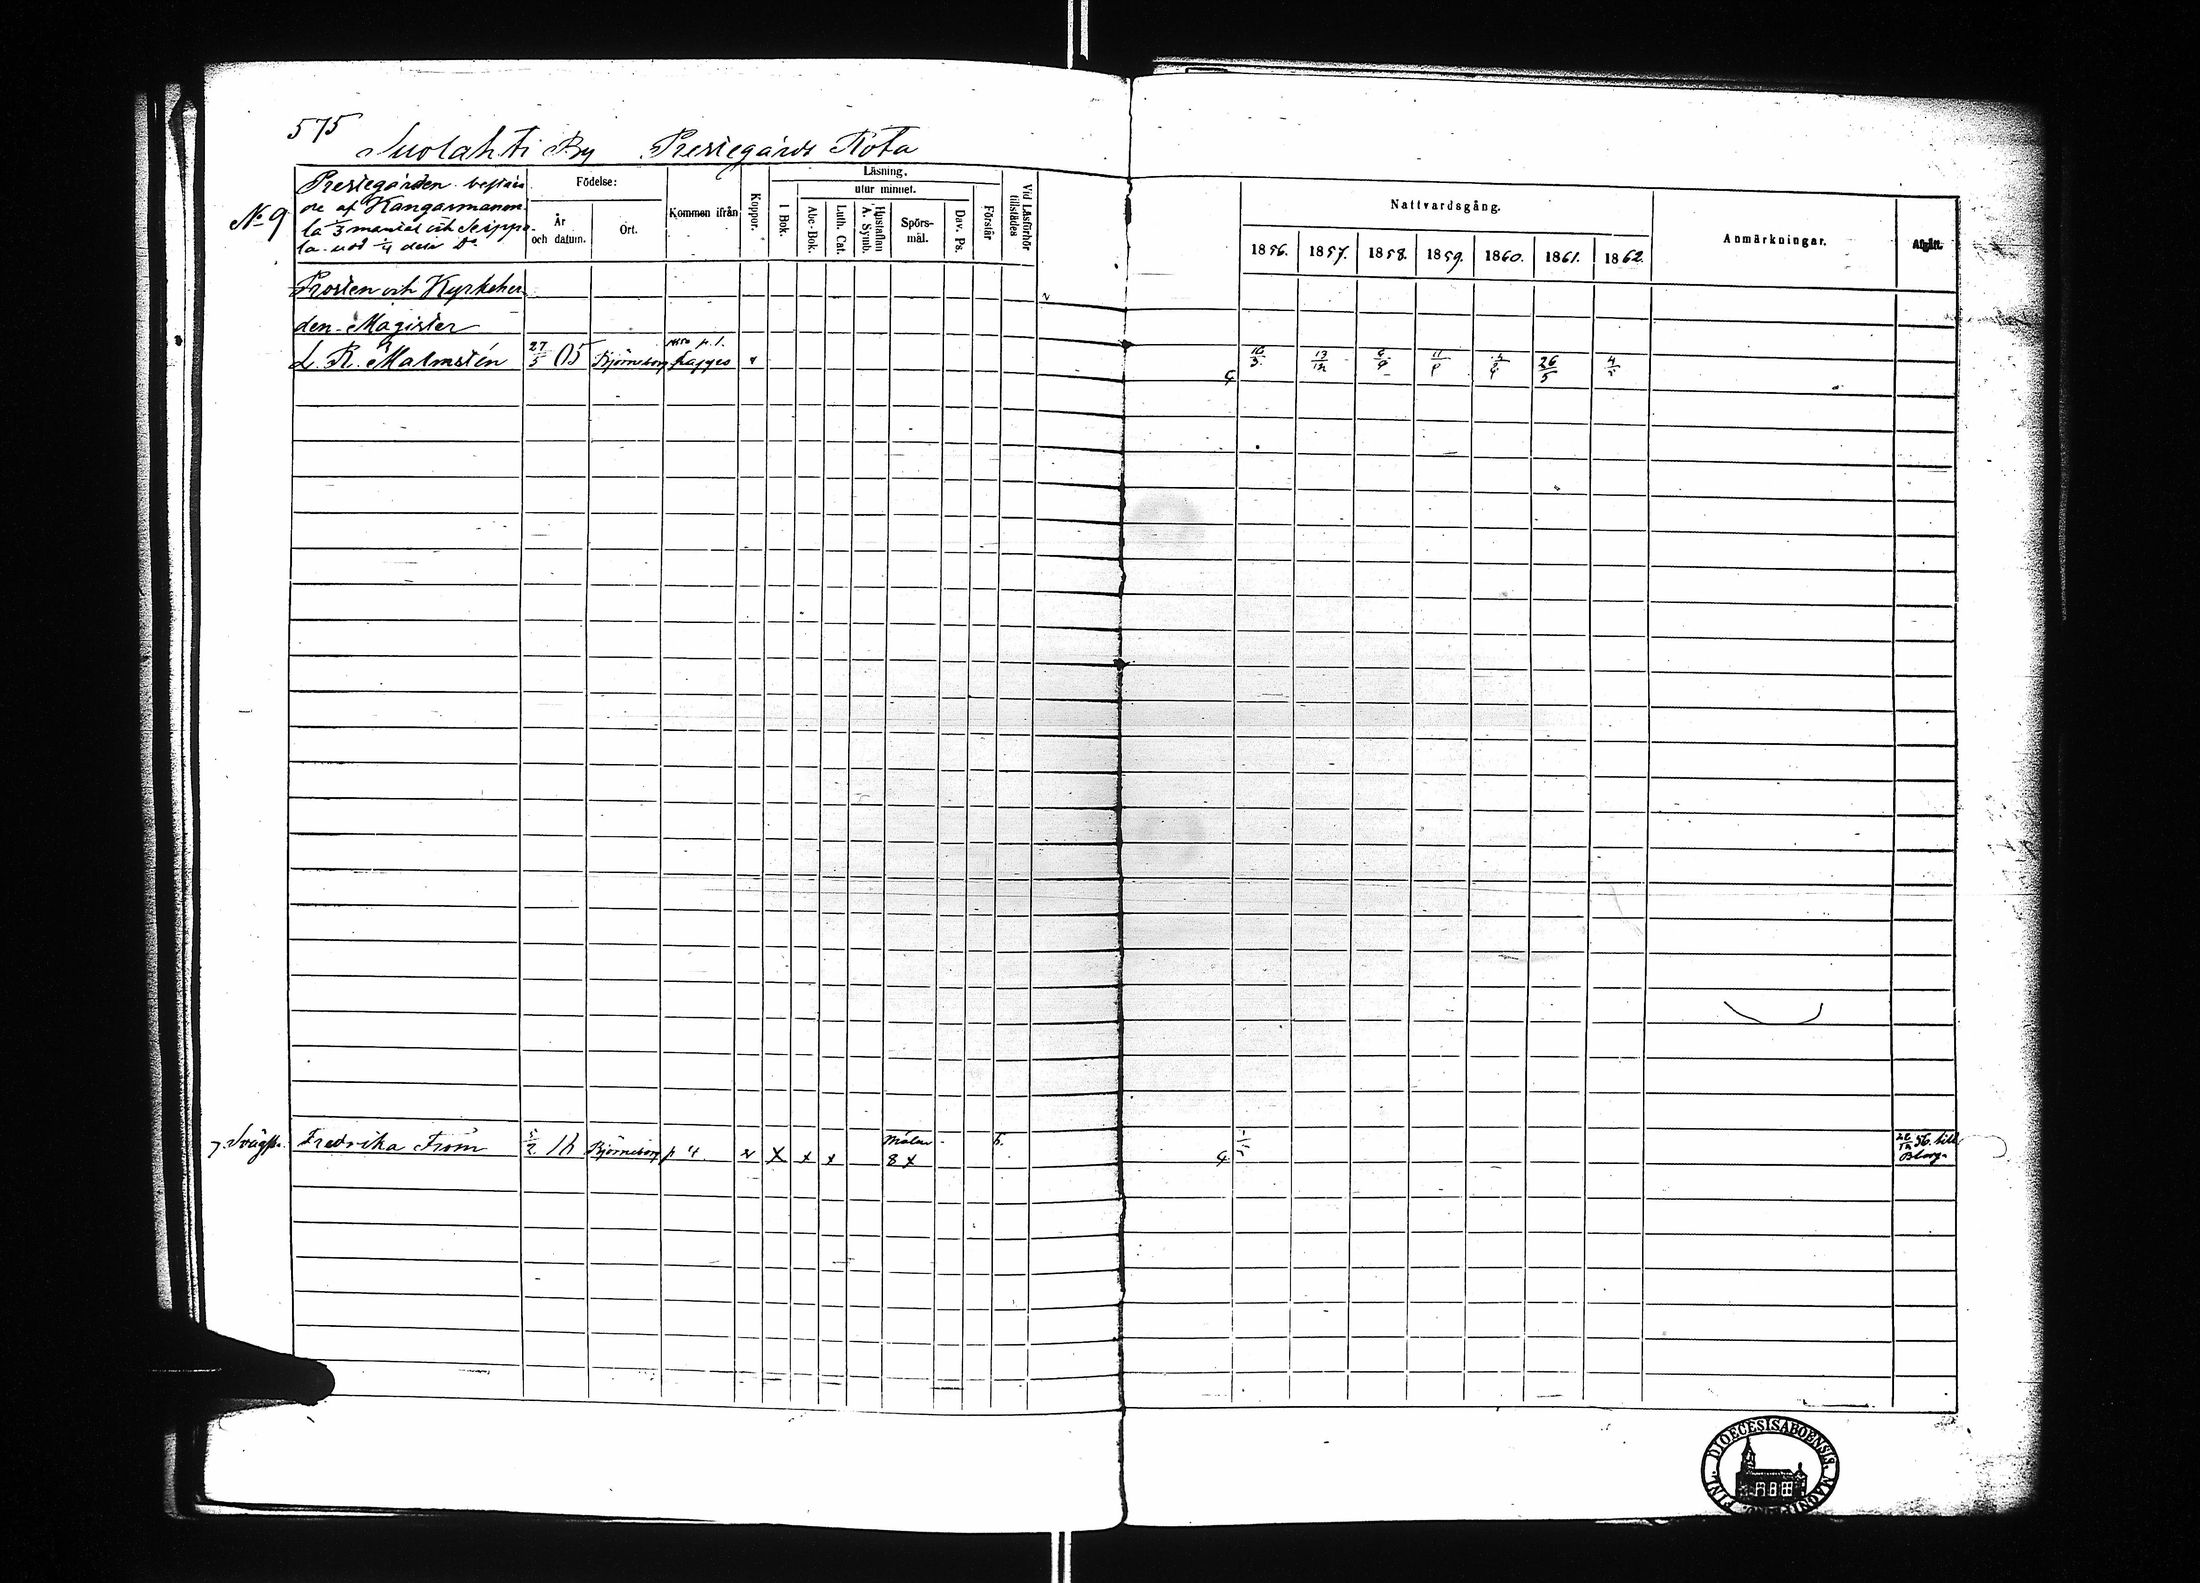 575
Suolahti By Prestegårds Rota
No 9
Prestegården bestå-
de af Kangasmanni-
la 1/3 mantal och Seippä-
la-usd 1/4 dels Do
Födelse:
År
och datum.
Ort.
Kommen ifrån
Koppor.
Läsning,
utur minnet.
I Bok.
Abc-Bok.
Luth. Cat.
Hustaflan
A. Symb.
Spörs-
mål.
Dav. Ps.
Förstår
Vid Läsförhör
tillstädes
Nattvardsgång.
1856. 1857. 1858. 1859. 1860. 1861. 1862.
Anmärkningar.
Afgått.
Prosten och Kyrkoher-
den Magister
L. R. Malmstén 27/5 05 Björneborg 26/5
Svägsk. Fredrika From 5/2 Björneborg p 4 x x x 8 x
56. till
DIOECESIS ABOENSIS